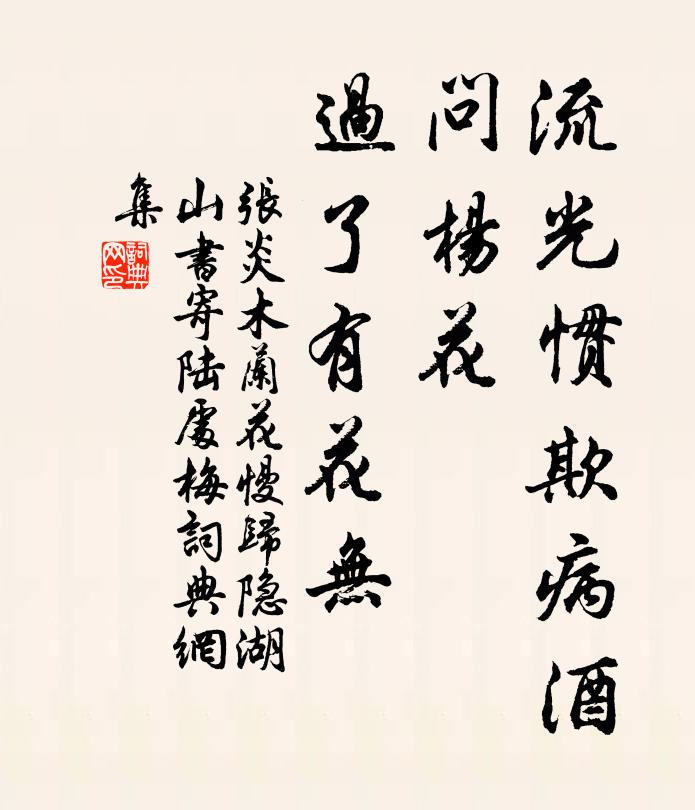 流光慣欺病酒
問楊花
過了有花無
張炎木蘭花慢歸隐湖
山書寄陆處梅詞典網
集
詞典
网印